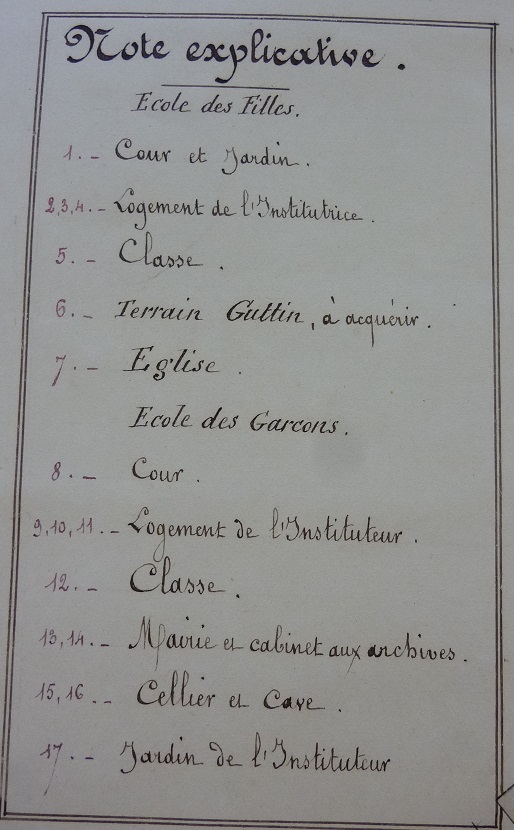 Note explicative.
Ecole des Filles.
1. - Cour et Jardin.
2,3,4. - Logement de l'Institutrice.
5. - Classe.
6. - Terrain Guttin, à acquérir.
7. - Eglise.
Ecole des Garcons.
8. - Cour.
9,10,11. - Logement de l'Instituteur.
12. - Classe.
13,14. - Mairie et cabinet aux archives.
15,16. - Cellier et Cave.
17. - Jardin de l'Instituteur